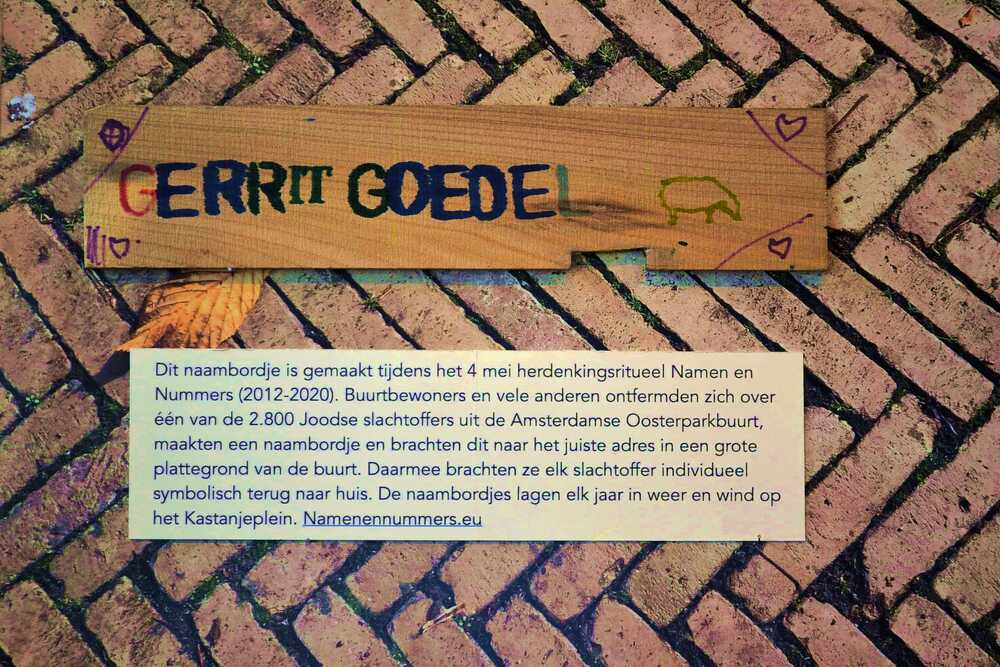 GERRIT GOEDEL
Dit naambordje is gemaakt tijdens het 4 mei herdenkingsritueel Namen en
Nummers (2012-2020). Buurtbewoners en vele anderen ontfermden zich over
één van de 2.800 Joodse slachtoffers uit de Amsterdamse Oosterparkbuurt,
maakten een naambordje en brachten dit naar het juiste adres in een grote
plattegrond van de buurt. Daarmee brachten ze elk slachtoffer individueel
symbolisch terug naar huis. De naambordjes lagen elk jaar in weer en wind op
het Kastanjeplein. Namenennummers.eu